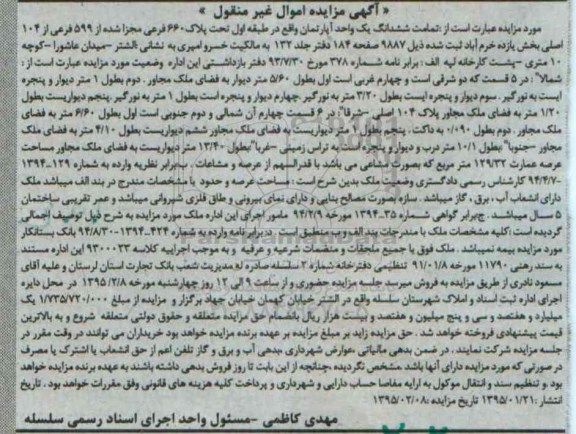 « آگهی مزایده اموال غیر منقول »
مورد مزایده عبارت است از :تمامت ششدانگ یک واحد آپارتمان واقع در طبقه اول تحت پلاک۶۶۰فرعی مجزا شده از ۵۹۹ فرعی از ۱۰۴
اصلی بخش یازده خرم آباد ثبت شده ذیل ۹۸۸۷ صفحه ۱۸۴ دفتر جلد ۱۳۲ به مالکیت خسرو امیری به نشانی :الشتر –میدان عاشورا –کوچه
۱۰ متری –پست کارخانه لپه الف : برابر نامه شماره ۳۷۸ مورخ ۹۳/۷/۳۰ دفتر بازداشتی این اداره وضعیت مورد مزایده عبارت است از:
شمالا" : در ۵ قسمت که دو شرقی است و چهارم غربی است اول بطول ۵/۶۰ متر دیوار به فضای ملک مجاور . دوم بطول ۱ متر دیوار و پنجره
ایست به نورگیر . سوم دیوار و پنجره ایست بطول ۳/۲۰ متر به نورگیر. چهارم دیوار و پنجره است بطول ۱ متر به نورگیر. پنجم دیواریست بطول
۱/۲۰ متر به فضای ملک مجاور پلاک ۱۰۴ اصلی –شرقا": در ۶ قسمت چهارم آن شمالی و دوم جنوبی است اول بطول ۶/۶۰ متر به فضای
ملک مجاور . دوم بطول ۰/۰۹۰ به داکت . پنجم بطول ۲ متر دیواریست به فضای ملک مجاور ششم دیواریست بطول ۴/۱۰ متر به فضای ملک
مجاور –جنوبا" بطول ۱۰/۱ متر درب و دیوار و پنجره است به تراس زمینی –غربا"بطول ۱۳/۴۰ متر دیواریست به فضای ملک مجاور مساحت
عرصه عمارت ۱۲۹/۳۲ متر مربع که بصورت مشاعی می باشد با قدرالسهم از عرصه و مشاعات . ب:برابر نظریه وارده به شماره ۱۲۹–۱۳۹۴
–۹۴/۴/۷ کارشناس رسمی دادگستری وضعیت ملک بدین شرح است : مساحت عرصه و حدود با مشخصات مندرج در بند الف میباشد ملک
دارای انشعاب آب ، برق ، گاز میباشد . سازه بصورت مصالح بنایی و دارای نمای بیرونی و طاق فلزی شیروانی میباشد و عمر تقریبی ساختمان
۵ سال میباشد . ج:برابر گواهی شماره ۳۵–۱۳۹۴ مورخه ۹۴/۲/۹ مامور اجرای این اداره ملک مورد مزایده به شرح ذیل توصیف اجمالی
گردیده است :کلیه مشخصات ملک با مندرجات بند الف و ب منطبق است . د:برابر نامه وارده به شماره ۴۲۴–۱۳۹۴–۹۴/۸/۳۰ بانک بستانکار
مورد مزایده بیمه نمیباشد . ملک فوق با جمیع ملحقات و منضمات شرعیه و عرفیه و به موجب اجراییه کلاسه ۹۳۰۰۰۳۳ این اداره مستند
به سند رهنی ۱۱۷۹۰ مورخه ۹۱/۰۱/۸ تنظیمی دفترخانه شماره ۳ سلسله صادره له مدیریت شعب بانک تجارت استان لرستان و علیه آقای
مسعود نادری از طریق مزایده به فروش میرسد جلسه مزایده حضوری و از ساعت ۹ الی ۱۲ روز چهارشنبه مورخه ۱۳۹۵/۲/۸ در محل دایره
اجرای اداره ثبت اسناد و املاک شهرستان سلسله واقع در الشتر خیابان کهمان خیابان جهاد برگزار و مزایده از مبلغ ۱/۷۳۵/۷۲۰/۰۰۰ یک
میلیارد و هفتصد و سی و پنج میلیون و هفتصد و بیست هزار ریال بانضمام حق مزایده متعلقه و حقوق دولتی متعلقه شروع و به بالاترین
قیمت پیشنهادی فروخته خواهد شد . حق مزایده زاید بر مبلغ مزایده بر عهده برنده مزایده خواهد بود خریداران می توانند در وقت مقرر در
جلسه مزایده شرکت نمایند . در ضمن بدهی مالیاتی ،عوارض شهرداری ،بدهی آب و برق و گاز تلفن اعم از حق انشعاب یا اشتراک یا مصرف
در صورتی که مورد مزایده دارای آنها باشد .مشخص نگردیده ،چنانچه از این بابت تا روز فروش بدهی داشته باشند به عهده برنده مزایده خواهد
بود .و تنظیم سند و انتقال موکول به ارایه مفاصا حساب دارایی و شهرداری و پرداخت کلیه هزینه های قانونی وفق مقررات خواهد بود . تاریخ
انتشار :۱۳۹۵/۰۱/۲۱ تاریخ مزایده :۱۳۹۵/۰۲/۰۸
مهدی کاظمی –مسئول واحد اجرای اسناد رسمی سلسله